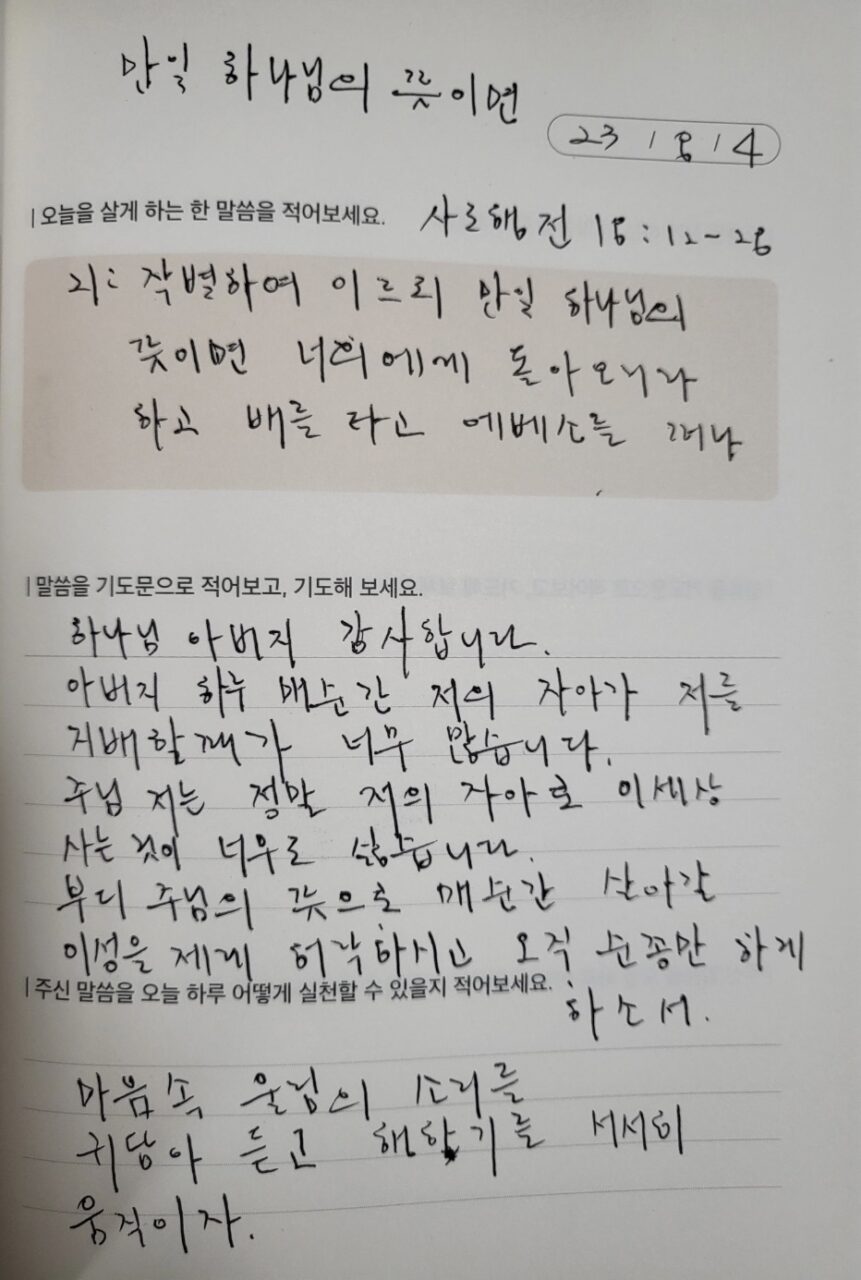 만일 하나님의 뜻이면
23 / 8 / 4
오늘을 살게 하는 한 말씀을 적어보세요. 사도행전 18:12-28
21: 작별하여 이르되 만일 하나님의
뜻이면 너희에게 돌아오리라
하고 배를 타고 에베소를 떠나
말씀을 기도문으로 적어보고, 기도해 보세요.
하나님 아버지 감사합니다.
아버지 하루 매순간 저의 자아가 저를
지배할때가 너무 많습니다.
주님 저는 정말 저의 자아로 이세상
사는 것이 너무도 싫습니다.
부디 주님의 뜻으로 매순간 살아갈
이성을 제게 허락하시고 오직 순종만 하게
주신 말씀을 오늘 하루 어떻게 실천할 수 있을지 적어보세요.
하소서.
마음속 울림의 소리를
귀담아 듣고 서서히
움직이자.